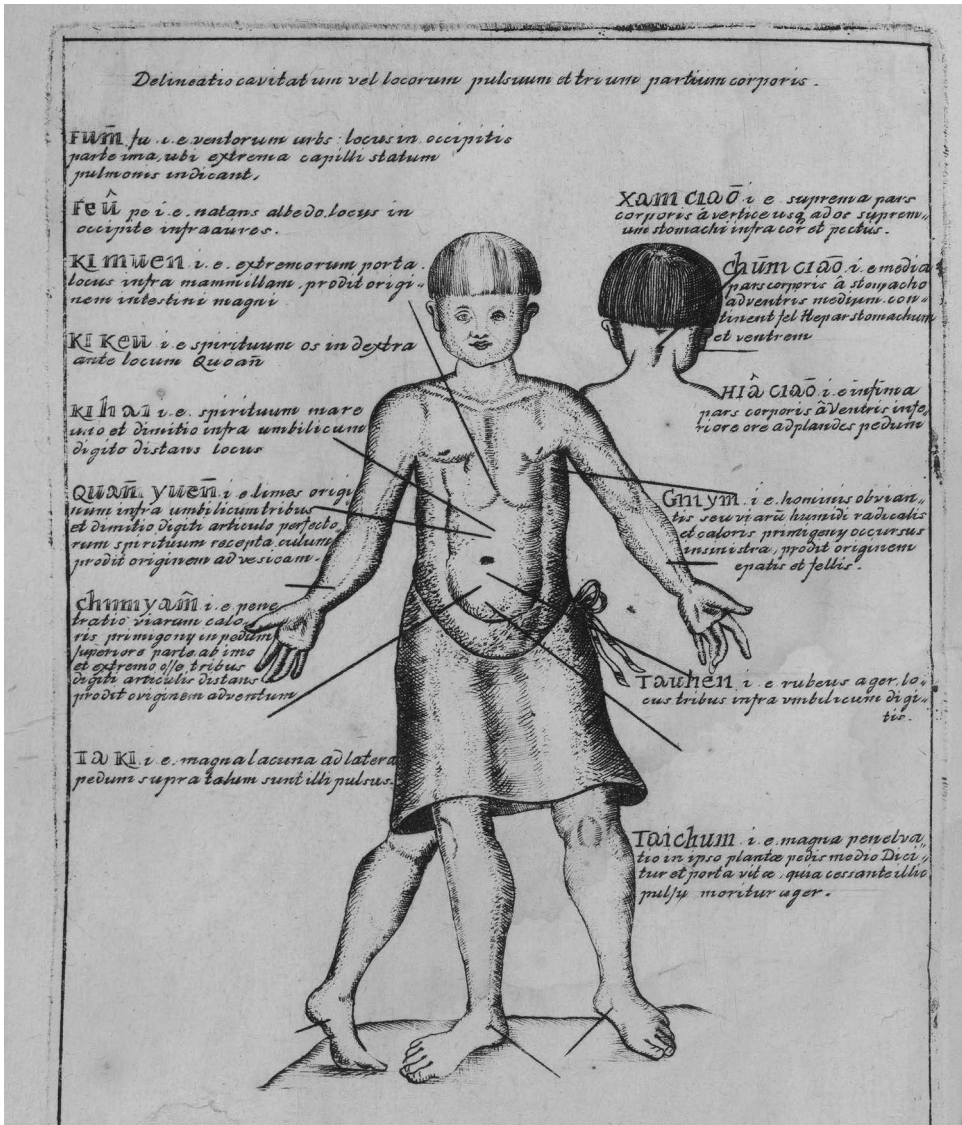 Delineatio cavitatum vel locorum pulsuum et trium partium corporis.
FUM̄ fu .i.e ventorum urbs: locus in occipitis
parte ima, ubi extrema capilli statum
pulmonis indicant,
Feû pe i.e. natans albedo. locus in
occipite infra aures.
KI MUEN i.e. extremorum porta.
locus infra mammillam. prodit origi-
nem intestini magni
KI Keu i.e spirituum os in dextra
ante locum Quoan̄
KI hai i.e. spirituum mare
uno et dimitio infra umbilicum
digito distans locus
QUAN̄ YUEN̄ i.e limes origi
num infra umbilicum tribus
et dimitio digiti articulo perfecto
rum spirituum recepta culum
prodit originem ad vesicam.
Chumyam̄ i.e pene
tratio viarum calo-
ris primigeny in pedum
superiore parte ab imo
et extremo osse tribus
digiti articulis distans
prodit originem ad ventum
Ta KI i.e. magna lacuna ad latera
pedum supra talum sunt illi pulsus.
Xam CIAŌ i.e suprema pars
corporis à vertice usq, ad os suprem-
um stomachi infra cor et pectus.
Chūm CIAŌ i.e media
pars corporis à stomacho
ad ventris medium. con-
tinent fel Hepar stomachum
et ventrem
HIÂ CIAŌ i.e infima
pars corporis â Ventris infe-
riore ore ad plandes pedum
Gniym i.e. hominis obvian-
tis seu viarū humidi radicalis
et caloris primigeny occursus
in sinistra, prodit originem
epatis et fellis.
Tauhen i.e rubeus ager, lo-
cus tribus infra vmbilicum digi-
tis.
Taichum i.e. magna
tio in ipso plantæ pedis medio Dici-
tur et porta vitæ, quia cessante illic
pulsu moritur æger.